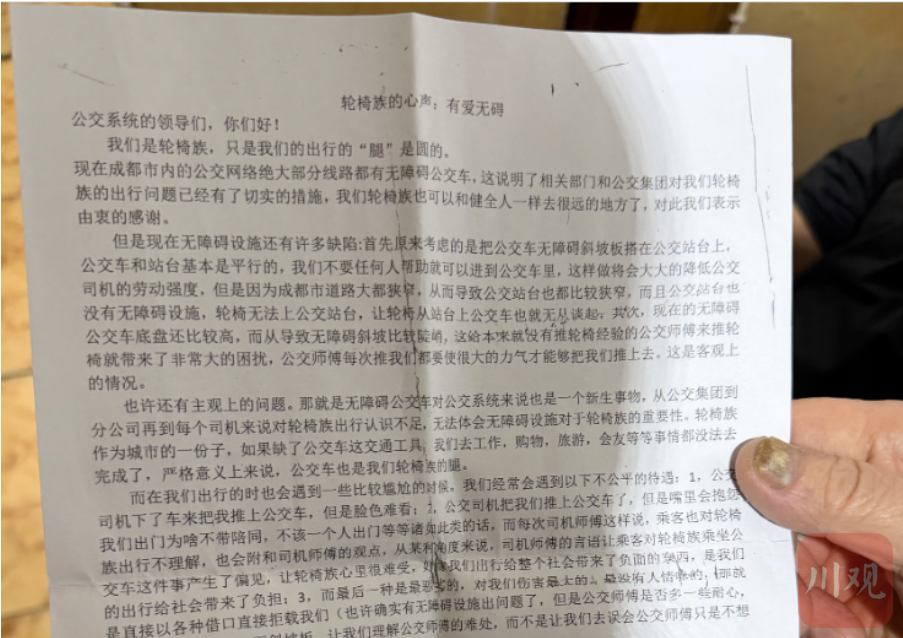 轮椅族的心声：有爱无碍
公交系统的领导们，你们好！
我们是轮椅族，只是我们的出行的“腿”是圆的。
现在成都市内的公交网络绝大部分线路都有无障碍公交车，这说明了相关部门和公交集团对我们轮椅
族的出行问题已经有了切实的措施，我们轮椅族也可以和健全人一样去很远的地方了，对此我们表示
由衷的感谢。
但是现在无障碍设施还有许多缺陷:首先原来考虑的是把公交车无障碍斜坡板搭在公交站台上，
公交车和站台基本是平行的，我们不要任何人帮助就可以进到公交车里，这样做将会大大的降低公交
司机的劳动强度，但是因为成都市道路大都狭窄，从而导致公交站台也都比较狭窄，而且公交站台也
没有无障碍设施，轮椅无法上公交站台，让轮椅从站台上公交车也就无从谈起；其次，现在的无障碍
公交车底盘还比较高，而从导致无障碍斜坡比较陡峭，这给本来就没有推轮椅经验的公交师傅来推轮
椅就带来了非常大的困扰，公交师傅每次推我们都要使很大的力气才能够把我们推上去。这是客观上
的情况。
也许还有主观上的问题。那就是无障碍公交车对公交系统来说也是一个新生事物，从公交集团到
分公司再到每个司机来说对轮椅族出行认识不足，无法体会无障碍设施对于轮椅族的重要性。轮椅族
作为城市的一份子，如果缺了公交车这交通工具，我们去工作，购物，旅游，会友等等事情都没法去
完成了，严格意义上来说，公交车也是我们轮椅族的腿。
而在我们出行的时也会遇到一些比较尴尬的时候，我们经常会遇到以下不公平的待遇：1，公交
司机下了车来把我推上公交车，但是脸色难看；2，公交司机把我们推上公交车了，但是嘴里会抱怨
我们出门为啥不带陪同，不该一个人出门等等诸如此类的话，而每次司机师傅这样说，乘客也对轮椅
族出行不理解，也会附和司机师傅的观点，从某种角度来说，司机师傅的言语让乘客对轮椅族乘坐公
交车这件事产生了偏见，让轮椅族心里很难受，好像我们出行给整个社会带来了负面的东西，是我们
的出行给社会带来了负担；3，而最后一种是最恶劣的，对我们伤害最大的，最没有人情味的，那就
是直接以各种借口直接拒载我们（也许确实有无障碍设施出问题了，但是公交师傅是否多一些耐心，
让我们理解公交师傅的难处，而不是让我们去误会公交师傅只是不想
川观